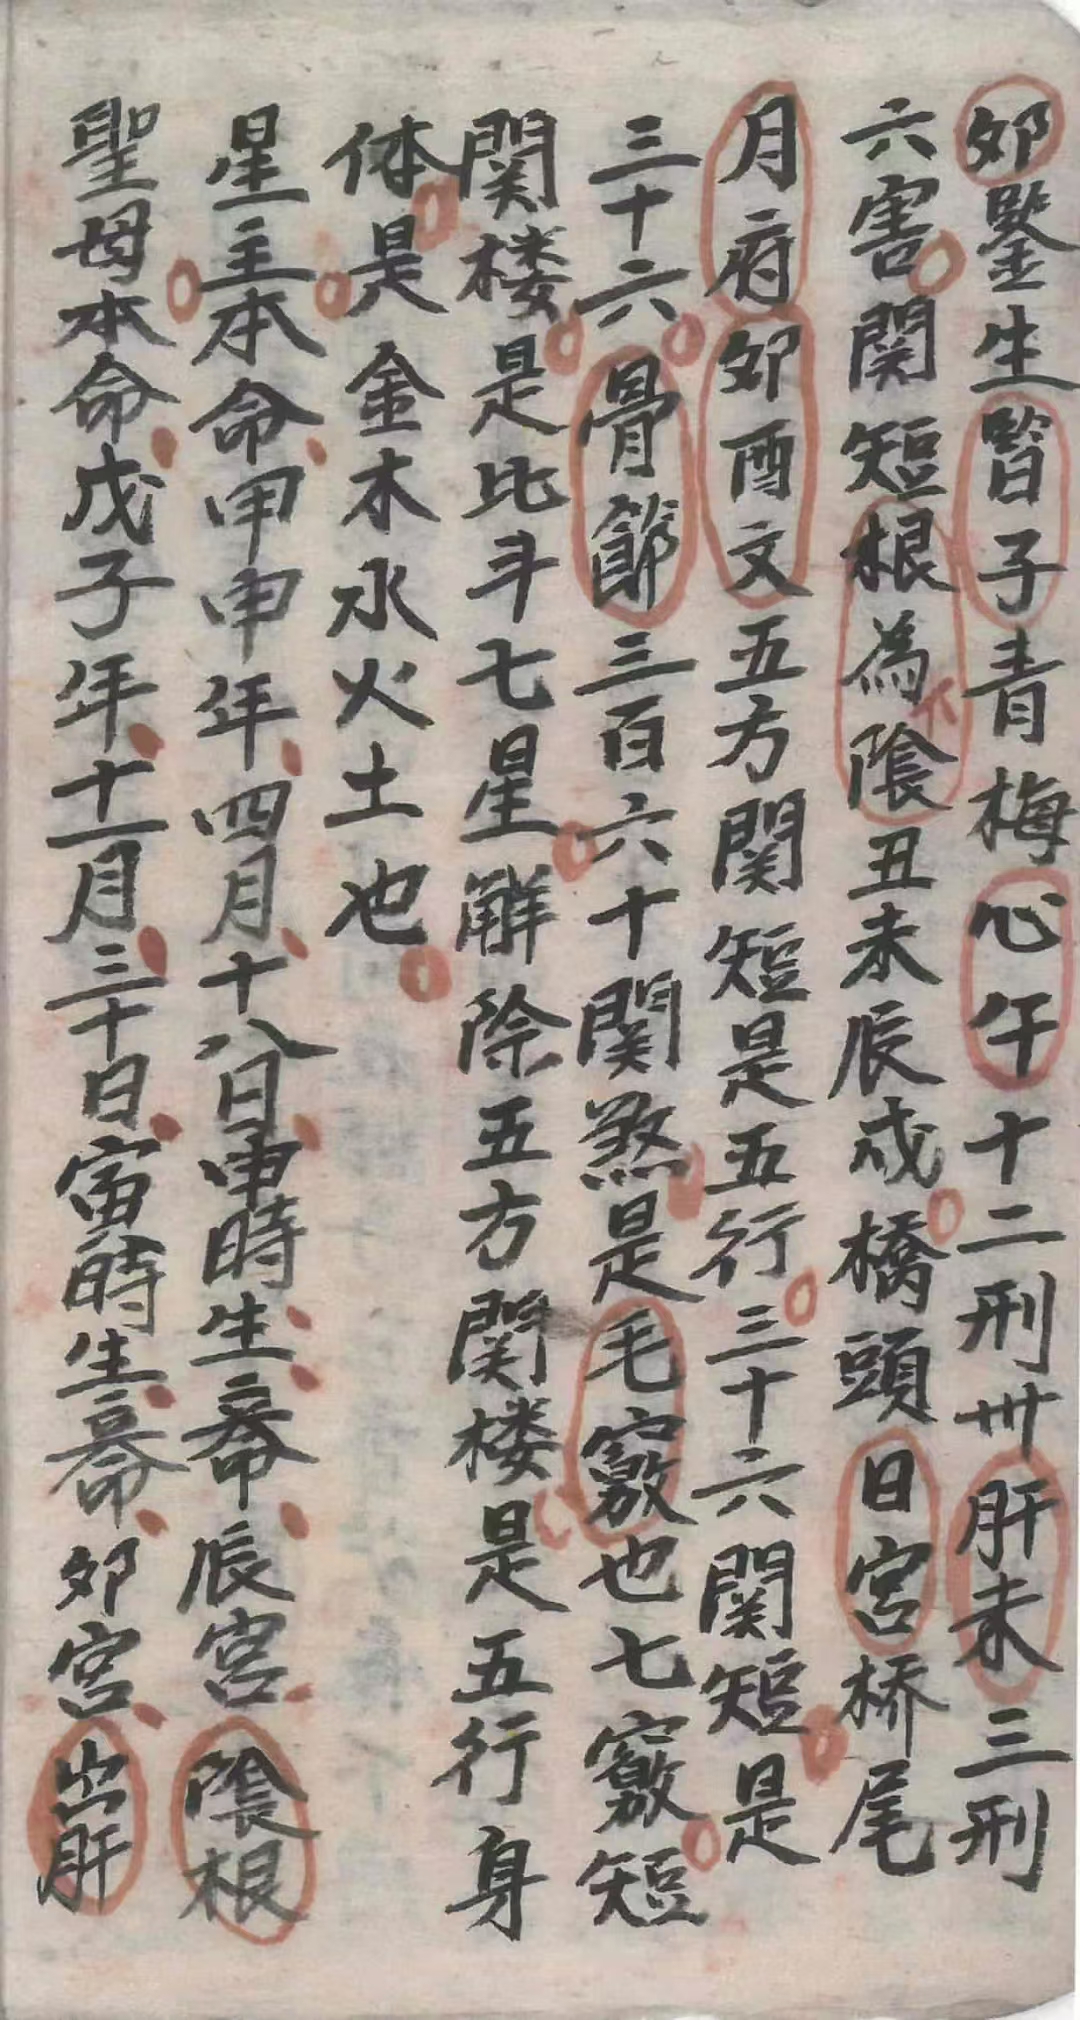 卯鑒生眢子青梅心午十二刑卅肝未三刑
六害関短根為陰丑未辰戌橋頭日宮桥尾
月府卯酉文五方関短是五行三十六関短是
三十六骨節三百六十関煞是毛竅也七竅短
関楼是比斗七星解除五方関楼是五行身
体是金木水火土也
星主本命甲申年四月十八日申時生辰宮陰根
聖母本命戊子年十一月三十日寅時生卯宮出肝